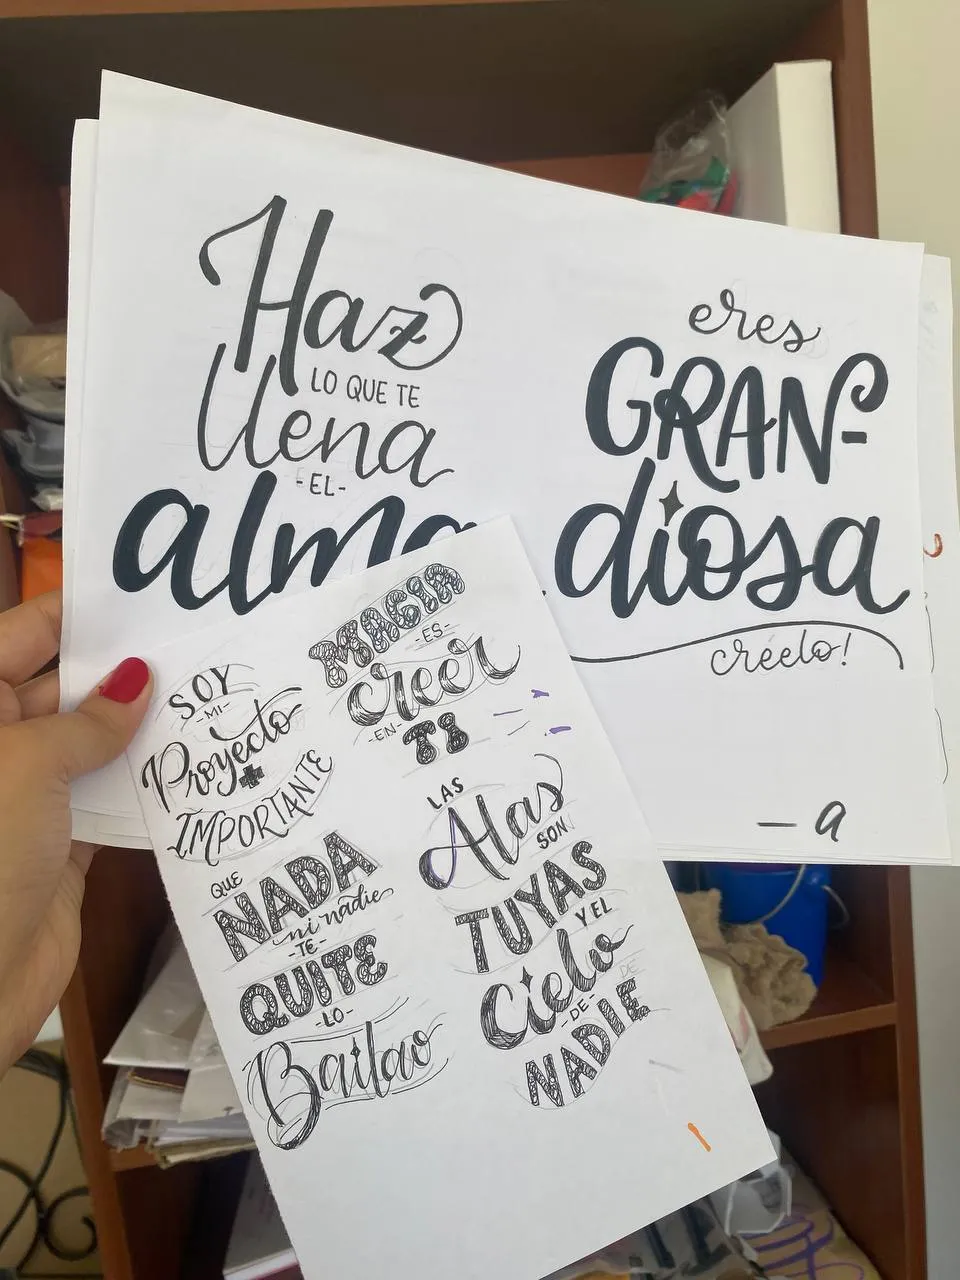 Haz
LO QUE TE
llena
-EL-
alma
eres
GRAN-
diosa
créelo!
— a
SOY
-MI-
Proyecto
+
IMPORTANTE
MAGIA
-ES-
creer
-EN-
TI
QUE
NADA
ni nadie
-TE-
QUITE
-LO-
Bailao
LAS
Alas
SON
TUYAS
Y EL
Cielo
DE
-DE-
NADIE